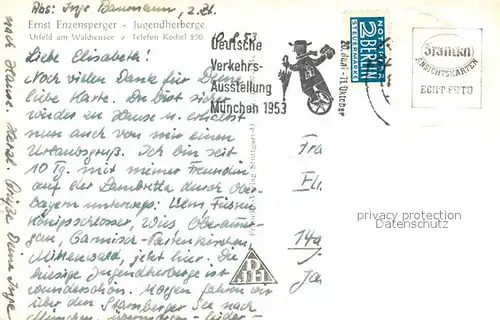 Abs: Inge Baumann, z. Zt.
Ernst Enzensperger - Jugendherberge
Urfeld am Walchensee / Telefon Kochel 230
Liebe Elisabeth!
Noch vielen Dank für Deine
liebe Karte. Du bist sicher
wieder zu Hause u. erhältst
nun auch von mir einen
Urlaubsgruß. Ich bin seit
10 Tg. mit meiner Freundin
auf der Lambretta durch Ober-
bayern unterwegs: Ulm, Füssen
Königschlösser, Wies, Oberammer-
gau, Garmisch-Partenkirchen,
Mittenwald, jetzt hier. Die
hiesige Jugendherberge ist
wunderschön. Morgen fahren wir
über den Starnberger See nach
München
nach Hause. Herzl. Grüße Deine Inge
Deutsche
Verkehrs-
Ausstellung
München 1953
20. Juni - 11. Oktober
NOTOPFER
2 BERLIN
STEUERMARKE
ANSICHTSKARTEN
ECHT FOTO
Fra
14a
DJH
privacy protection
Datenschutz